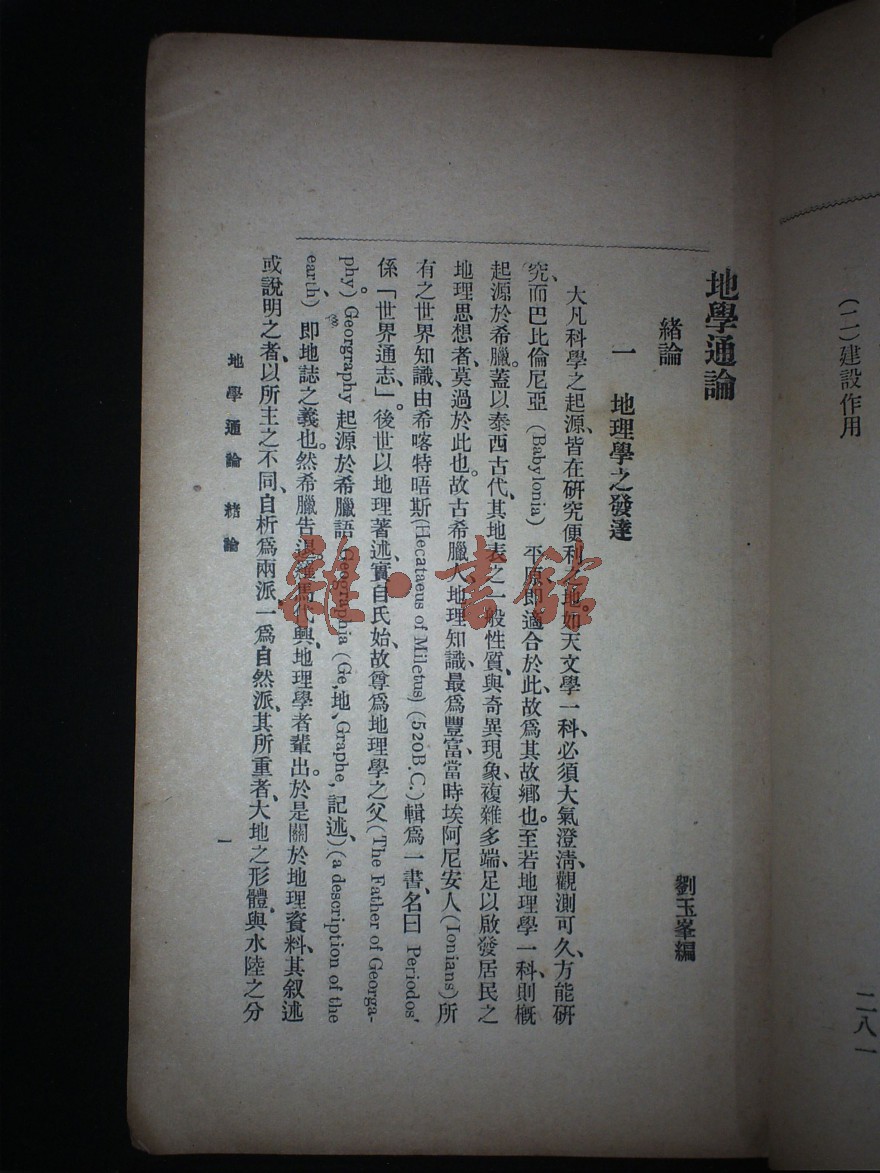 (二)建設作用
二八一
地學通論
緒論
劉玉峯編
一 地理學之發達
大凡科學之起源、皆在研究便利之地。如天文學一科、必須大氣澄淸、觀測可久、方能研
究、而巴比倫尼亞 (Babylonia) 平原、卽適合於此、故爲其故鄕也。至若地理學一科、則槪
起源於希臘。蓋以泰西古代、其地表之一般性質、與奇異現象、複雜多端、足以啟發居民之
地理思想者、莫過於此也。故古希臘人、地理知識、最爲豐富、當時埃阿尼安人(Ionians)所
有之世界知識、由希喀特唔斯(Hecataeus of Miletus) (520B.C.)輯爲一書、名曰 Periodos,
係「世界通志、」。後世以地理著述、實自氏始、故尊爲地理學之父(The Father of Georga-
phy) Georgraphy 起源於希臘語 Geographia (Ge,地、Graphe, 記述、)(a description of the
earth)、卽地誌之義也。然希臘告退、羅馬代興、地理學者輩出。於是關於地理資料、其叙述
或說明之者、以所主之不同、自析爲兩派、一爲自然派、其所重者、大地之形體、與水陸之分
地學通論 緒論
一
雜·書館